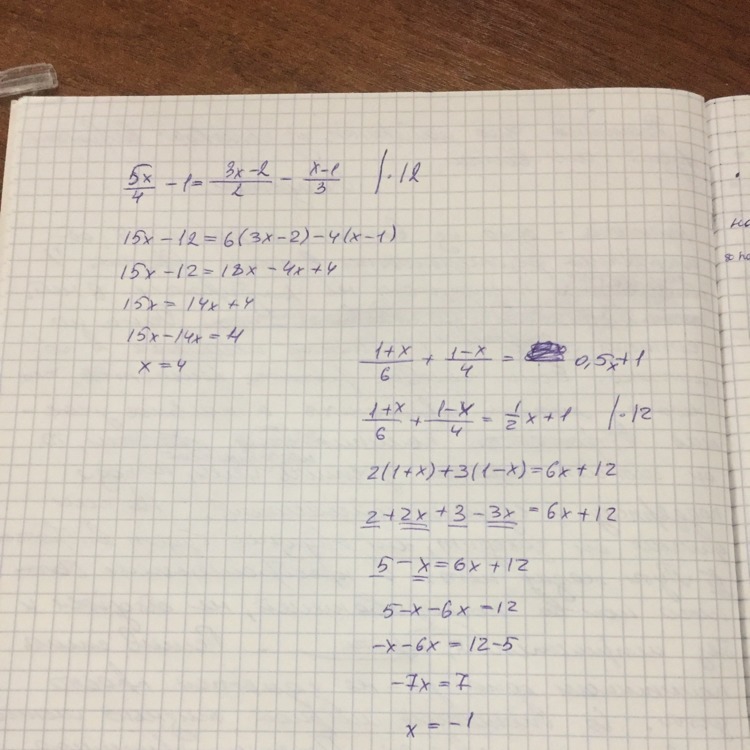 5x/4 - 1 = 3x-2/2 - x-1/3 /·12
15x - 12 = 6(3x-2) - 4(x-1)
15x - 12 = 18x - 4x + 4
15x = 14x + 4
15x - 14x = 4
x = 4
1+x/6 + 1-x/4 = 0,5x+1
1+x/6 + 1-x/4 = 1/2 x + 1 /·12
2(1+x) + 3(1-x) = 6x + 12
2 + 2x + 3 - 3x = 6x + 12
5 - x = 6x + 12
5 - x - 6x = 12
-x - 6x = 12 - 5
-7x = 7
x = -1